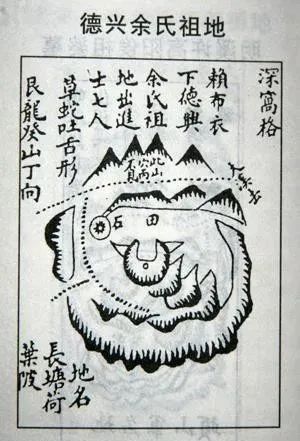 德兴余氏祖地
深窩格
賴布衣
下德興
余氏祖
地出進
士七人
草蛇吐舌形
艮龍癸山丁向
此山
穴内
不見
田
石
地名
長塘荷
葉陂